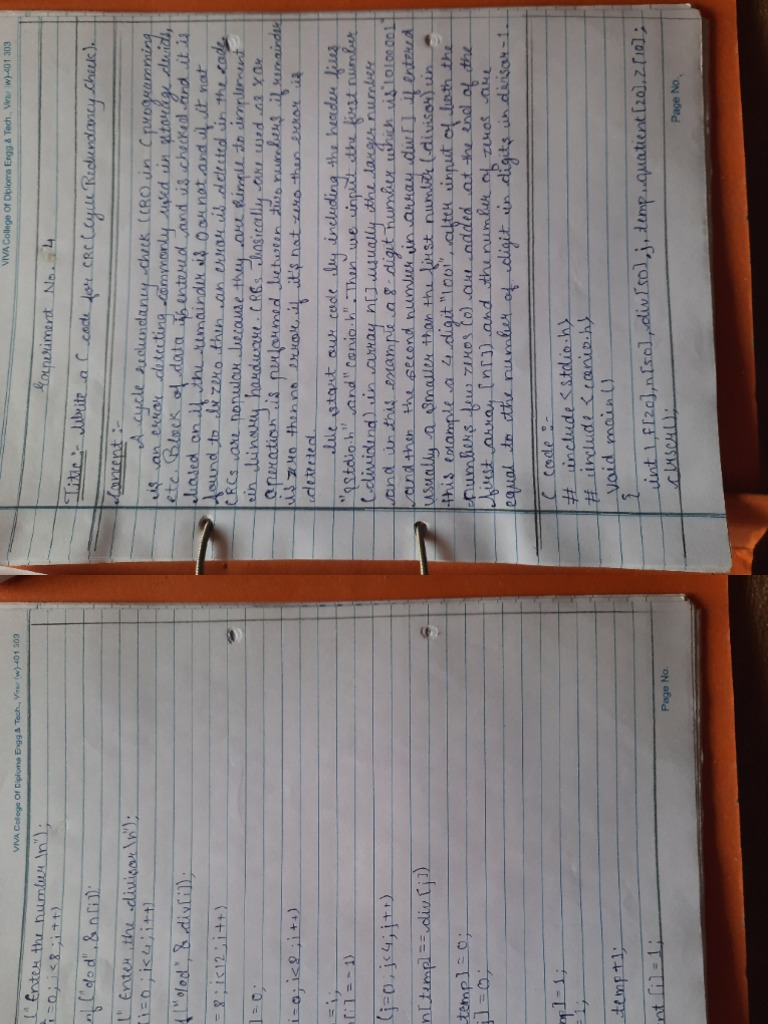 VIVA College Of Diploma Engg & Tech., Virar (w)-401 303
Experiment No. 4
Title :- Write a C code for CRC (Cycle Redundancy Check).
Concept :-
A cycle redundancy check (CRC) in C programming
is an error detecting commonly used in storage divide,
etc. Block of data is entered and is checked and it is
based on if the remainder is 0 or not and if it not
found to be zero then an error is detected in the code.
CRCs are popular because they are simple to implement
in binary hardware. CRCs basically are used as xar
operation is performed between two numbers if remainder
is zero then no error if it's not zero then error is
detected.
We start our code by including the header files
"stdio.h" and "conio.h". Then we input the first number
(dividend) in array n[] usually the larger number
and in this example a 8-digit number which is "10100001"
and then the second number in array div[] if entered
usually a smaller than the first number (divisor) in
this example a 4 digit "1001", after input of both the
numbers few zeros (0) are added at the end of the
first array [n[]) and the number of zeros are
equal to the number of digit in digits in divisor-1.
C code :-
# include <stdio.h>
# include <conio.h>
void main()
{
int i, f[20], n[50], div[50], j, temp, quotient[20], z[10];
clrscr();
Page No.
VIVA College Of Diploma Engg & Tech., Virar (w)-401 303
(" Enter the number \n");
i=0; i<8; i++)
nf ("%d", & n[i]);
(" Enter the divisor \n");
(i=0; i<4; i++)
f ("%d", & div[i]);
= 8; i<12; i++)
] = 0;
i=0; i<8; i++)
= i;
n[i] == 1)
(j=0; j<4; j++)
n[temp] == div[j])
temp] = 0;
j] = 0;
g] = 1;
= 1;
temp+1;
nt [i] = 1;
Page No.